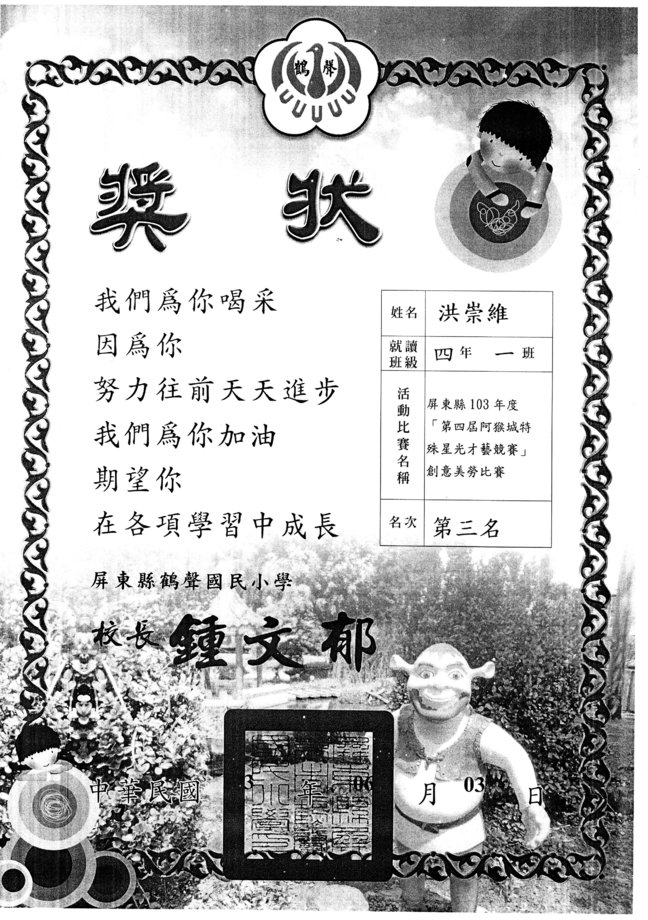 鶴聲
獎狀
我們為你喝采
因為你
努力往前天天進步
我們為你加油
期望你
在各項學習中成長
姓名 洪崇維
就讀班級 四年 一班
活動比賽名稱
屏東縣103年度
「第四屆阿猴城特
殊星光才藝競賽」
創意美勞比賽
名次 第三名
屏東縣鶴聲國民小學
校長 鍾文郁
中華民國 3 年 06 月 03 日